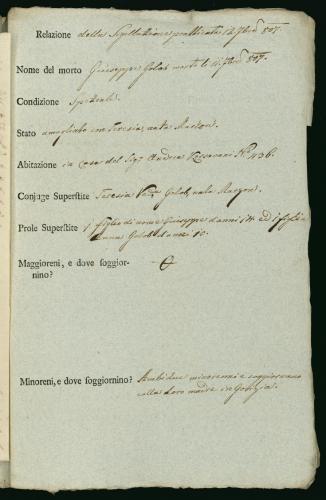 Relazione della Sigillazione pratticata li 12 7brē 807.
Nome del morto Giuseppe Golob morto li 11 7brē 807.
Condizione
Stato amogliato con Teresia, nata
Abitazione in Casa del Sigr Andrea N. 436.
Conjuge Superstite Teresia Golob, nata
Prole Superstite 1 figlio di nome Giuseppe d'anni 14 ed 1 figlia
Anna Golob d'anni 10.
Maggioreni, e dove soggior-
nino?
Minoreni, e dove soggiornino? Ambidue minorenni e soggiornano
colla loro madre in Gorizia.